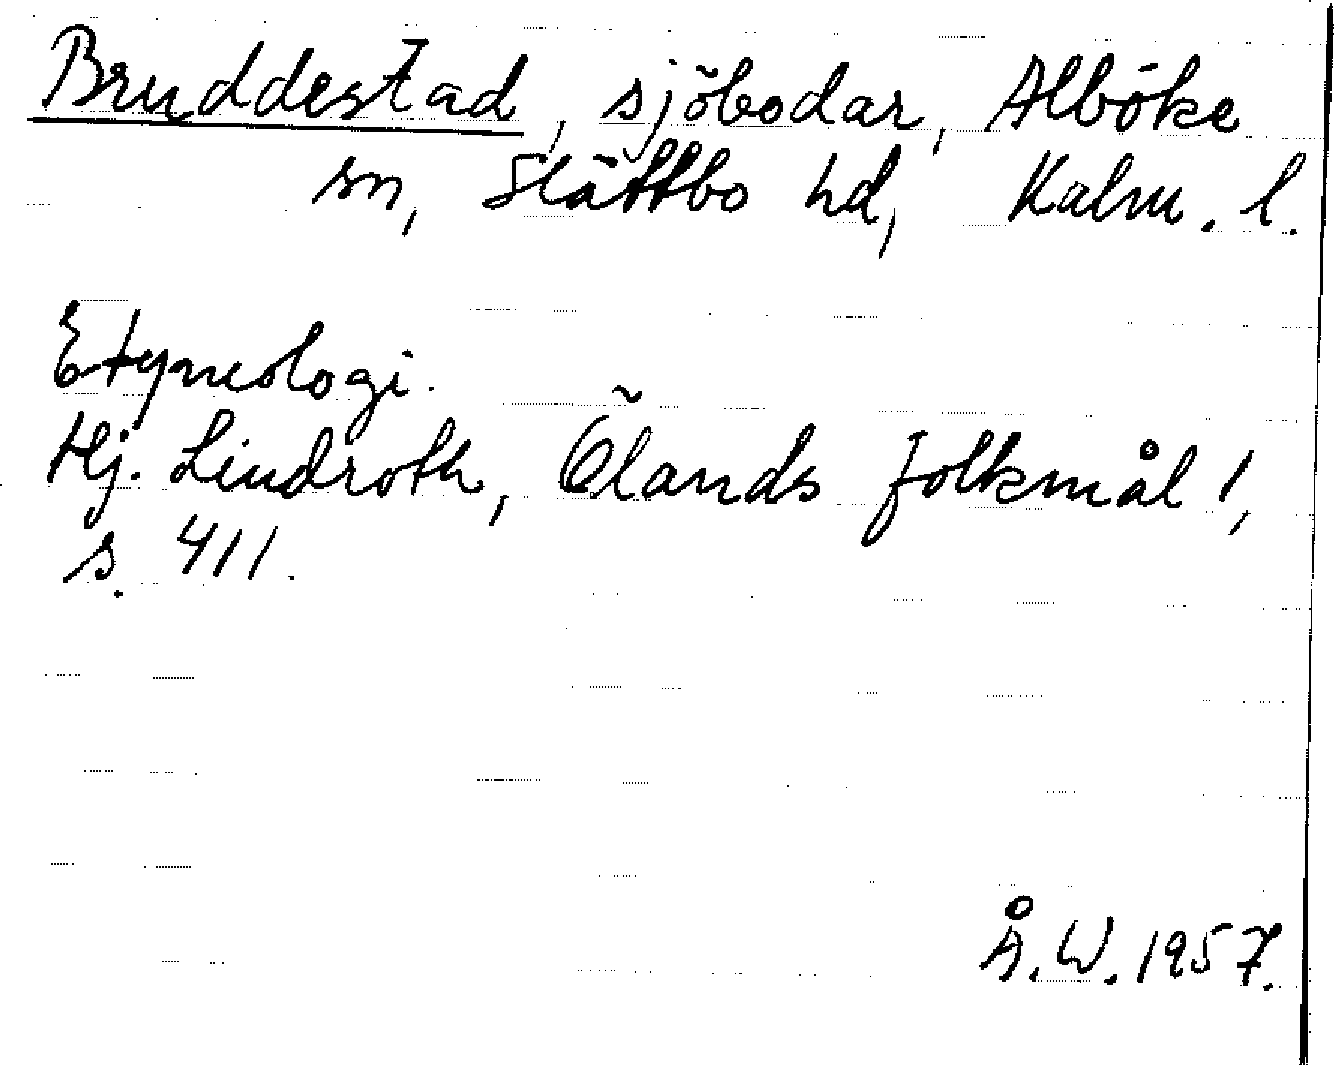 Bruddestad, sjöbodar, Alböke
sn, Slättbo hd, Kalm. l.
Etymologi.
Hj. Lindroth, Ölands folkmål 1,
s. 411.
Å. W. 1957.